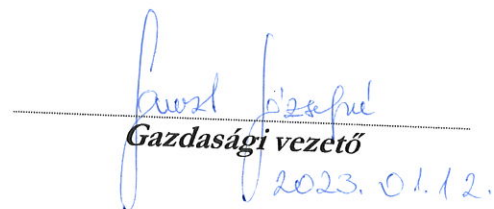 Józsefné
Gazdasági vezető
2023. 01.12.